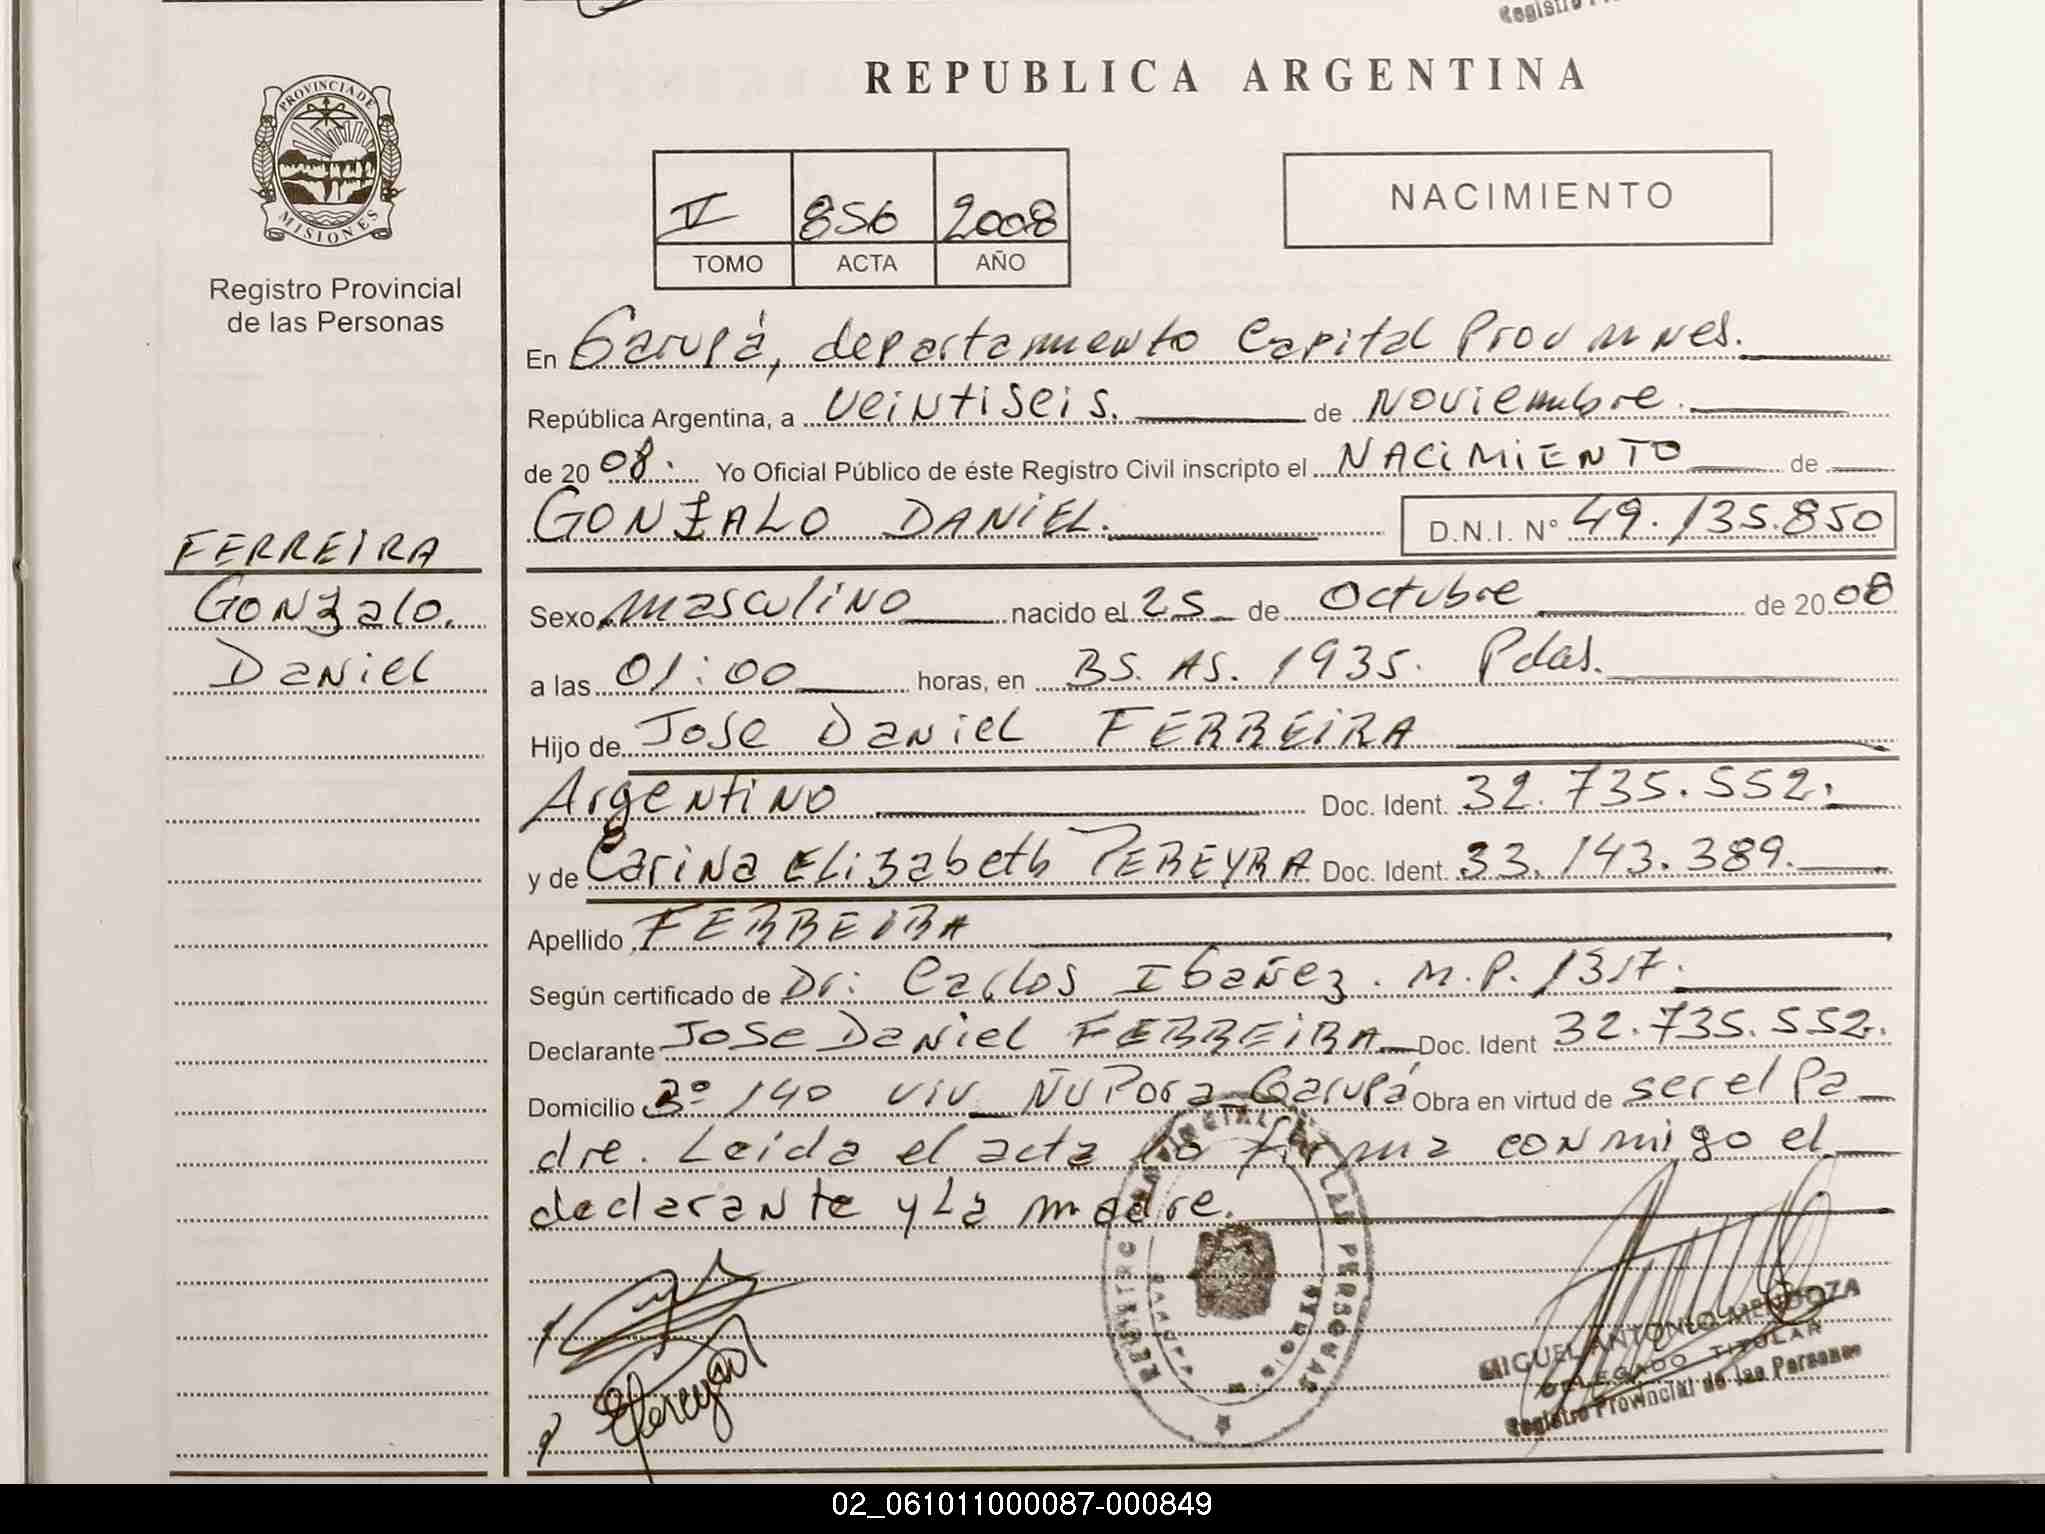 REPUBLICA ARGENTINA
PROVINCIA DE
MISIONES
Registro Provincial
de las Personas
V 856 2008
TOMO ACTA AÑO
NACIMIENTO
En Garupá, departamento Capital Prov Mnes.
República Argentina, a veintiseis. de Noviembre.
de 20 08. Yo Oficial Público de éste Registro Civil inscripto el NACIMIENTO de
GONZALO DANIEL. D.N.I. N° 49.135.850
FERREIRA
Gonzalo.
Daniel
Sexo masculino nacido el 25 de Octubre de 20 08
a las 01:00 horas, en BS. AS. 1935. Pdas.
Hijo de Jose Daniel FERREIRA
Argentino Doc. Ident. 32.735.552.
y de Carina Elizabeth PEREYRA Doc. Ident. 33.143.389.
Apellido FERREIRA
Según certificado de Dr: Carlos Ibañez. M.P. 1317.
Declarante Jose Daniel FERREIRA Doc. Ident 32.735.552.
Domicilio 3° 140 viv ÑuPora Garupá Obra en virtud de ser el Pa
dre. Leida el acta la firma conmigo el
declarante y La madre.
Pereyra
MIGUEL ANTONIO MENDOZA
DELEGADO TITULAR
Registro Provincial de las Personas
02_061011000087-000849